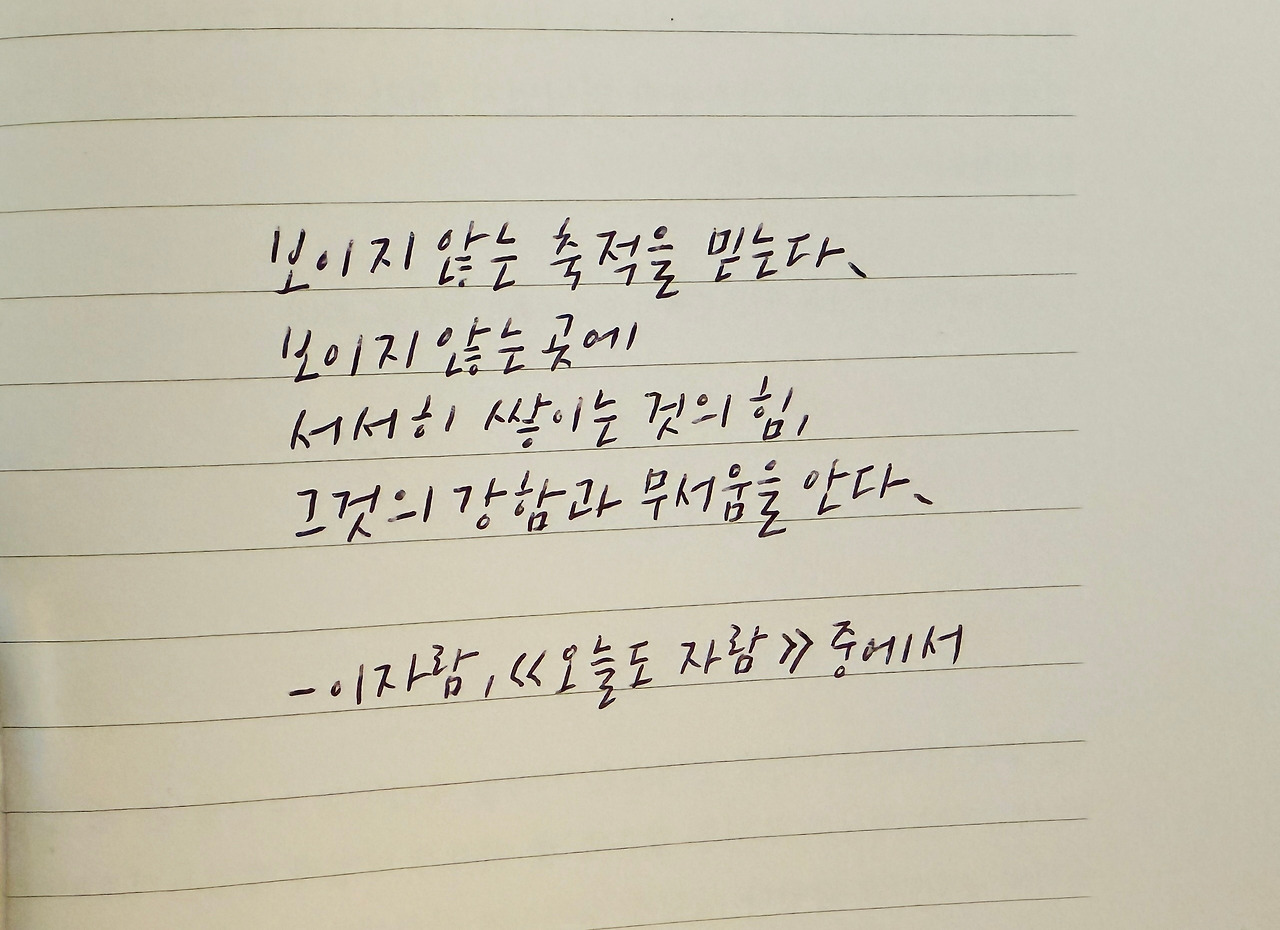 보이지 않는 축적을 믿는다.
보이지 않는 곳에
서서히 쌓이는 것의 힘,
그것의 강함과 무서움을 안다.
- 이자람, 《오늘도 자람》 중에서